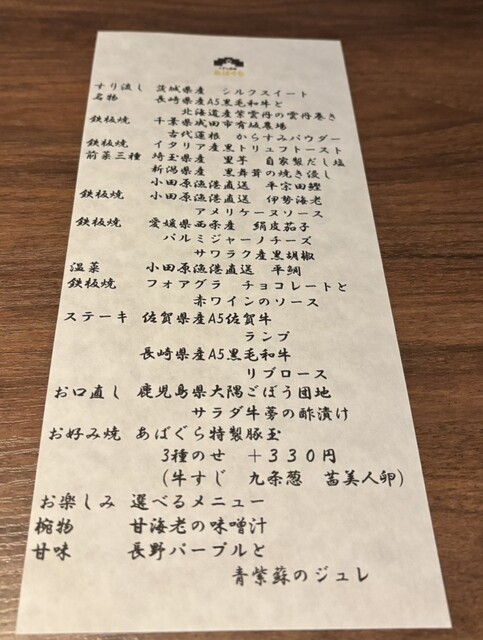 すり流し 茨城県産 シルクスイート
名物 長崎県産A5黒毛和牛と
北海道産紫雲丹の雲丹巻き
鉄板焼 千葉県成田市有坂農場
古代蓮根 からすみパウダー
鉄板焼 イタリア産黒トリュフトースト
前菜三種 埼玉県産 里芋 自家製だし塩
新潟県産 黒舞茸の焼き浸し
小田原漁港直送 平宗田鰹
鉄板焼 小田原漁港直送 伊勢海老
アメリケーヌソース
鉄板焼 愛媛県西条産 絹皮茄子
パルミジャーノチーズ
サワラク産黒胡椒
温菜 小田原漁港直送 平鯛
鉄板焼 フォアグラ チョコレートと
赤ワインのソース
ステーキ 佐賀県産A5佐賀牛
ランプ
長崎県産A5黒毛和牛
リブロース
お口直し 鹿児島県大隅ごぼう団地
サラダ牛蒡の酢漬け
お好み焼 あばぐら特製豚玉
3種のせ +330円
(牛すじ 九条葱 茜美人卵)
お楽しみ 選べるメニュー
椀物 甘海老の味噌汁
甘味 長野パープルと
青紫蘇のジュレ